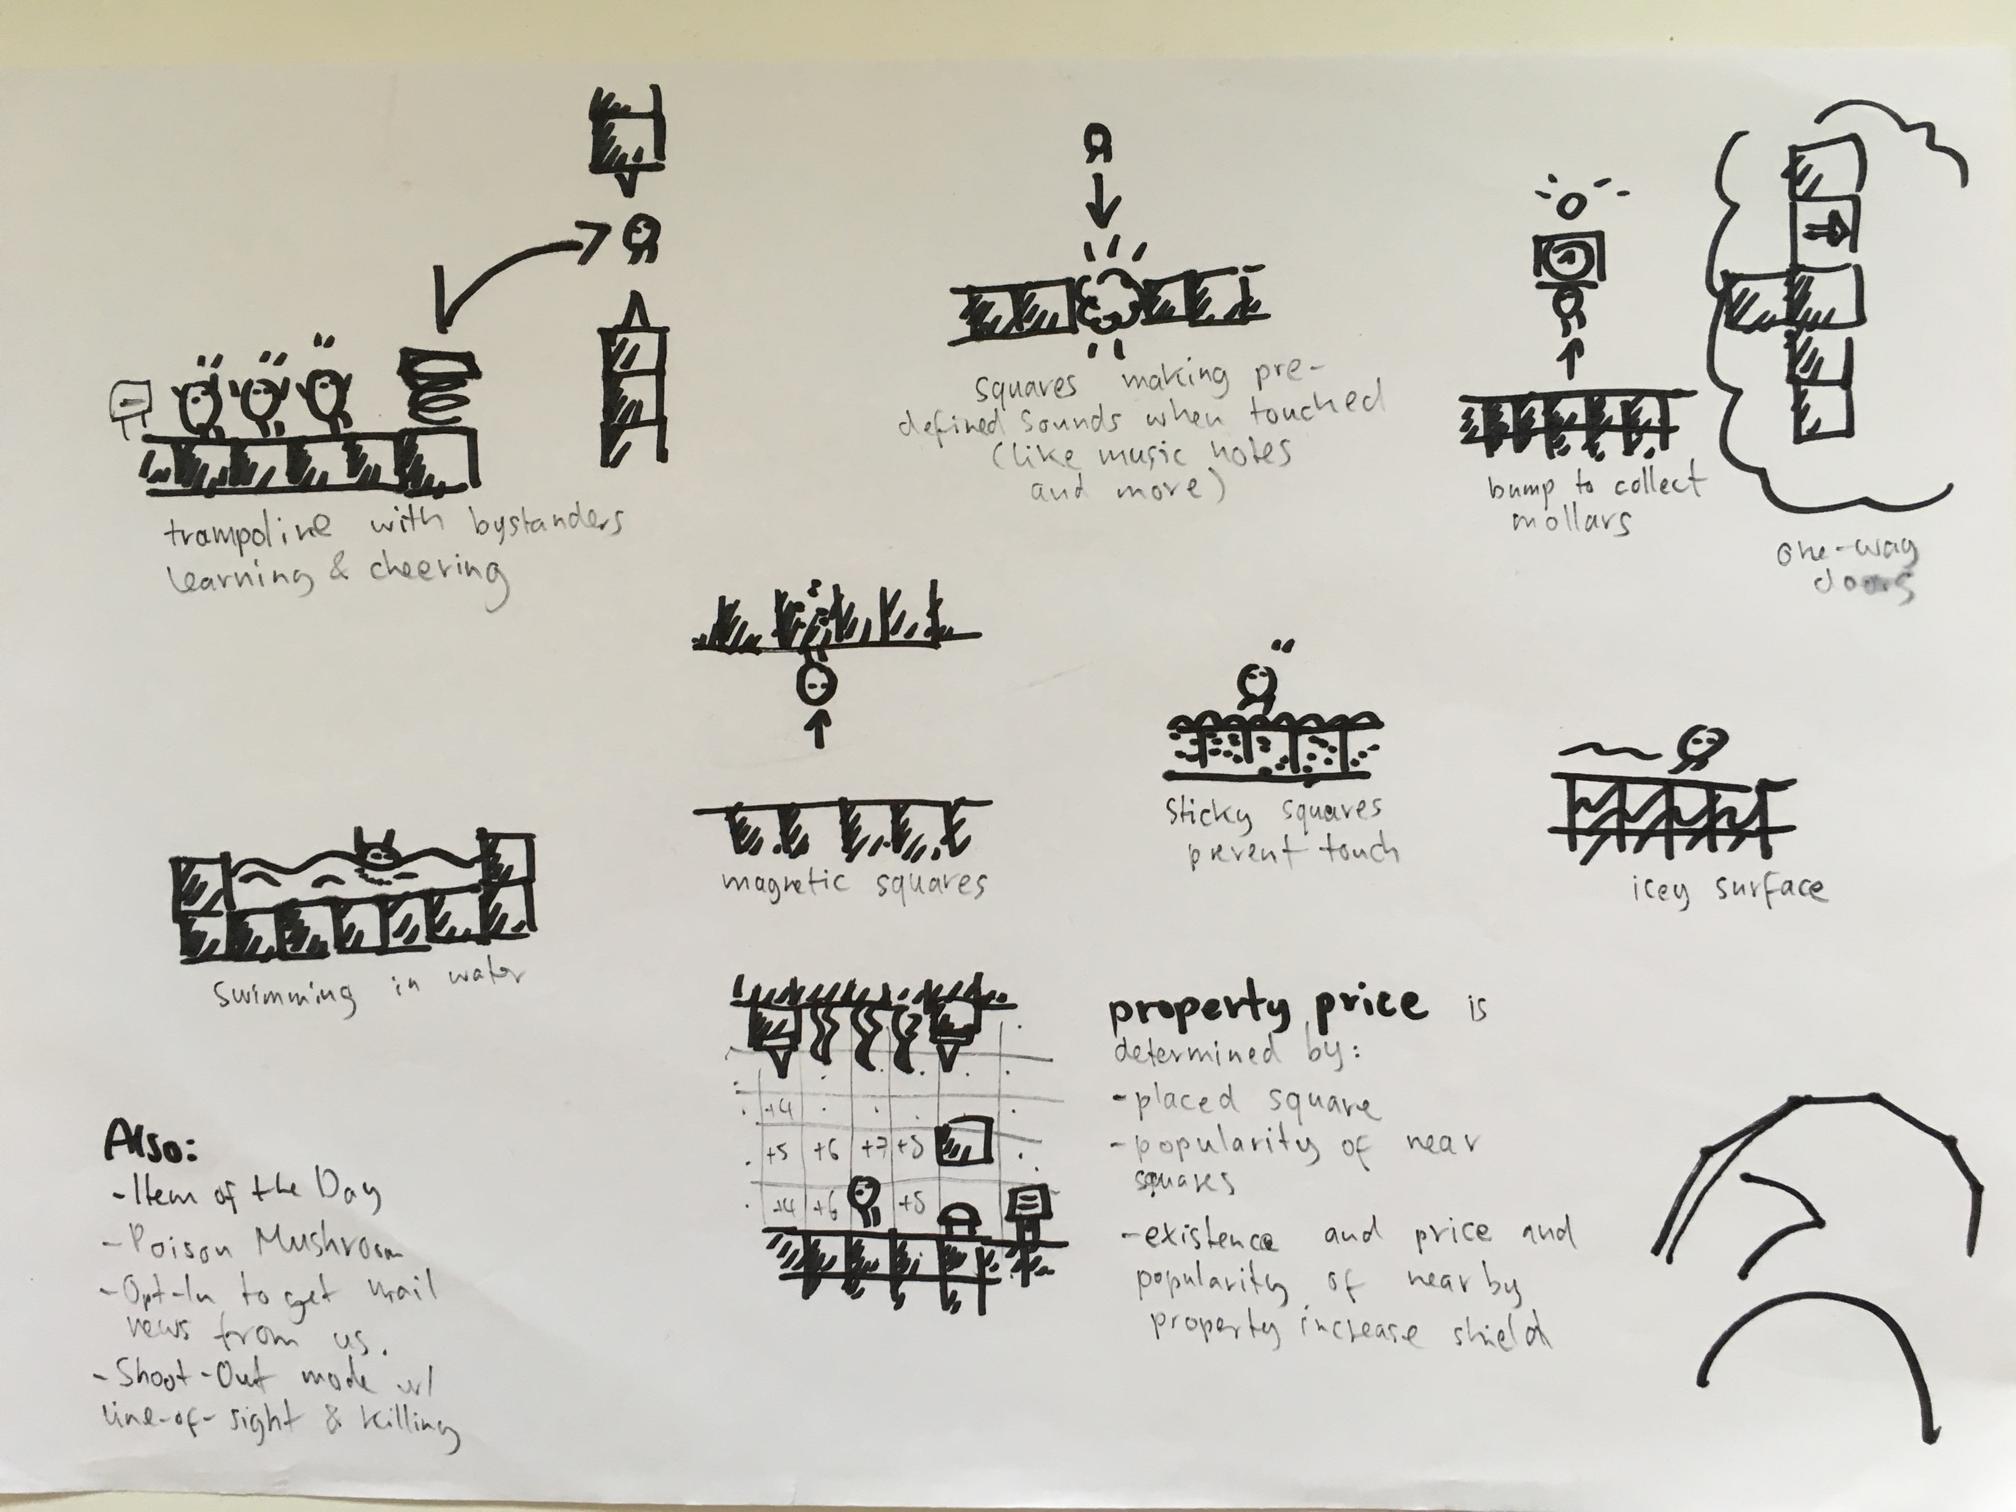 trampoline with bystanders
learning & cheering
squares making pre-
defined sounds when touched
(like music notes
and more)
bump to collect
mollars
one-way
doors
magnetic squares
sticky squares
prevent touch
icey surface
swimming in water
+4
+5 +6 +7 +8
+4 +6 +8
property price is
determined by:
-placed square
-popularity of near
squares
-existence and price and
popularity of nearby
property increase shield
Also:
-Item of the Day
-Poison Mushroom
-Opt-In to get mail
news from us.
-Shoot-Out mode w/
line-of-sight & killing